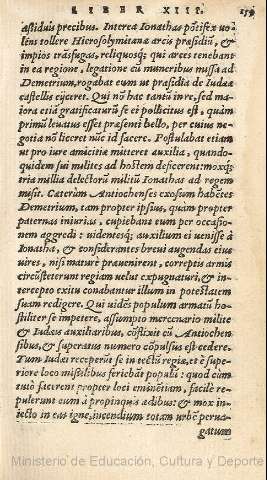 LIBER XIII.
assiduis precibus. Interea Ionathas pōtifex vo
lens tollere Hierosolymitanæ arcis præsidiū, &
impios trāsfugas, reliquosq; qui arces tenebant
in ea regione, legatione cū muneribus missa ad
Demetrium, rogabat eum ut præsidia de Iudæa
castellis eijceret. Qui nō hac tantū in re, sed ma
iora etiā gratificaturū se ei pollicitus est, quàm
primū leuatus esset præsenti bello, per cuius ne-
gotia nō liceret nūc id facere. Postulabat etiam
ut pro iure amicitiæ mitteret auxilia, quando-
quidem sui milites ad hostem deficerent moxq;
tria millia delectorū militū Ionathas ad regem
misit. Cæterùm Antiochenses exosum habētes
Demetrium, tam propter ipsius, quàm propter
paternas iniurias, cupiebant eum per occasio-
nem aggredi: uidentesq; auxilium ei uenisse à
Ionatha, & considerantes breui augendas eius
uires, nisi maturè præuenirent, correptis armis
circūsteterunt regiam uelut expugnaturi, & in-
tercepto exitu conabantur illum in potestatem
suam redigere. Qui uidēs populum armatū ho-
stiliter se impetere, assumpto mercenario milite
& Iudæis auxiliaribus, cōflixit cū Antiochen
sibus, & superatus numero cōpulsus est cedere.
Tum Iudæi receperūt se in tectū regiæ, et è supe-
riore loco missilibus feriebāt populū: quod cùm
tutò facerent propter loci eminētiam, facilè re-
pulerunt eum à propinquis ædibus: & mox in
iecto in eas igne, incendium totam urbē perua-
gatum
Ministerio de Educación, Cultura y Deporte